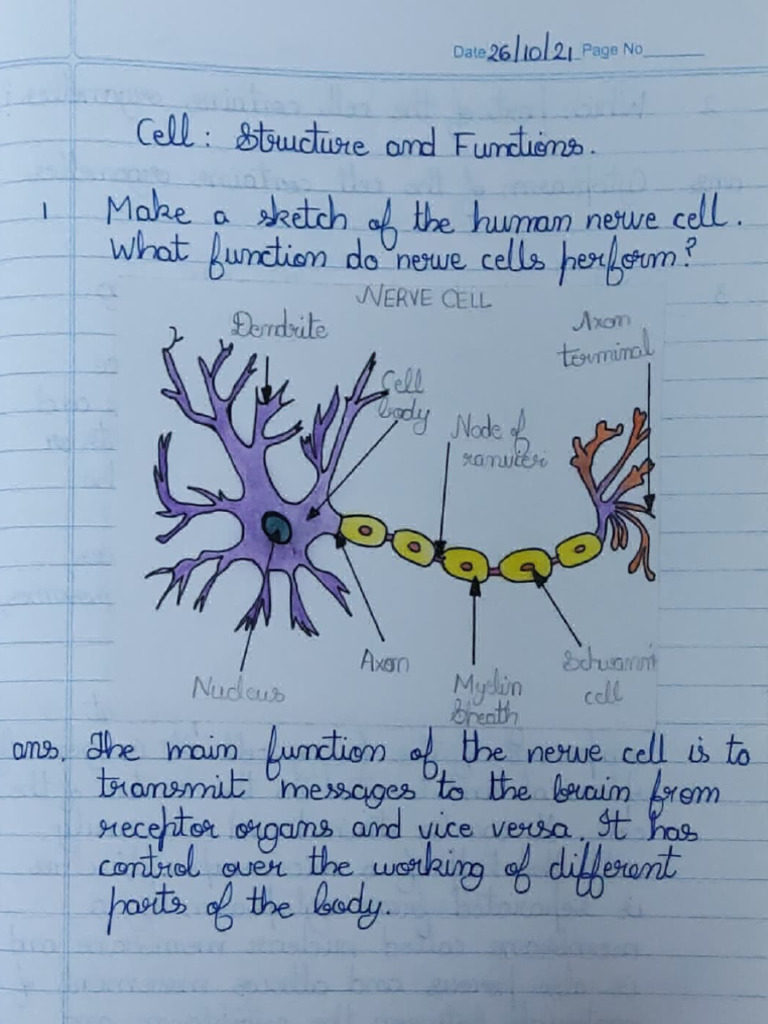 Date 26/10/21 Page No
Cell : Structure and Functions.
1 Make a sketch of the human nerve cell.
What function do nerve cells perform?
NERVE CELL
Dendrite
Axon
terminal
Cell
body
Node of
ranvier
Nucleus
Axon
Myelin
Sheath
Schwann
cell
ans. The main function of the nerve cell is to
transmit messages to the brain from
receptor organs and vice versa. It has
control over the working of different
parts of the body.